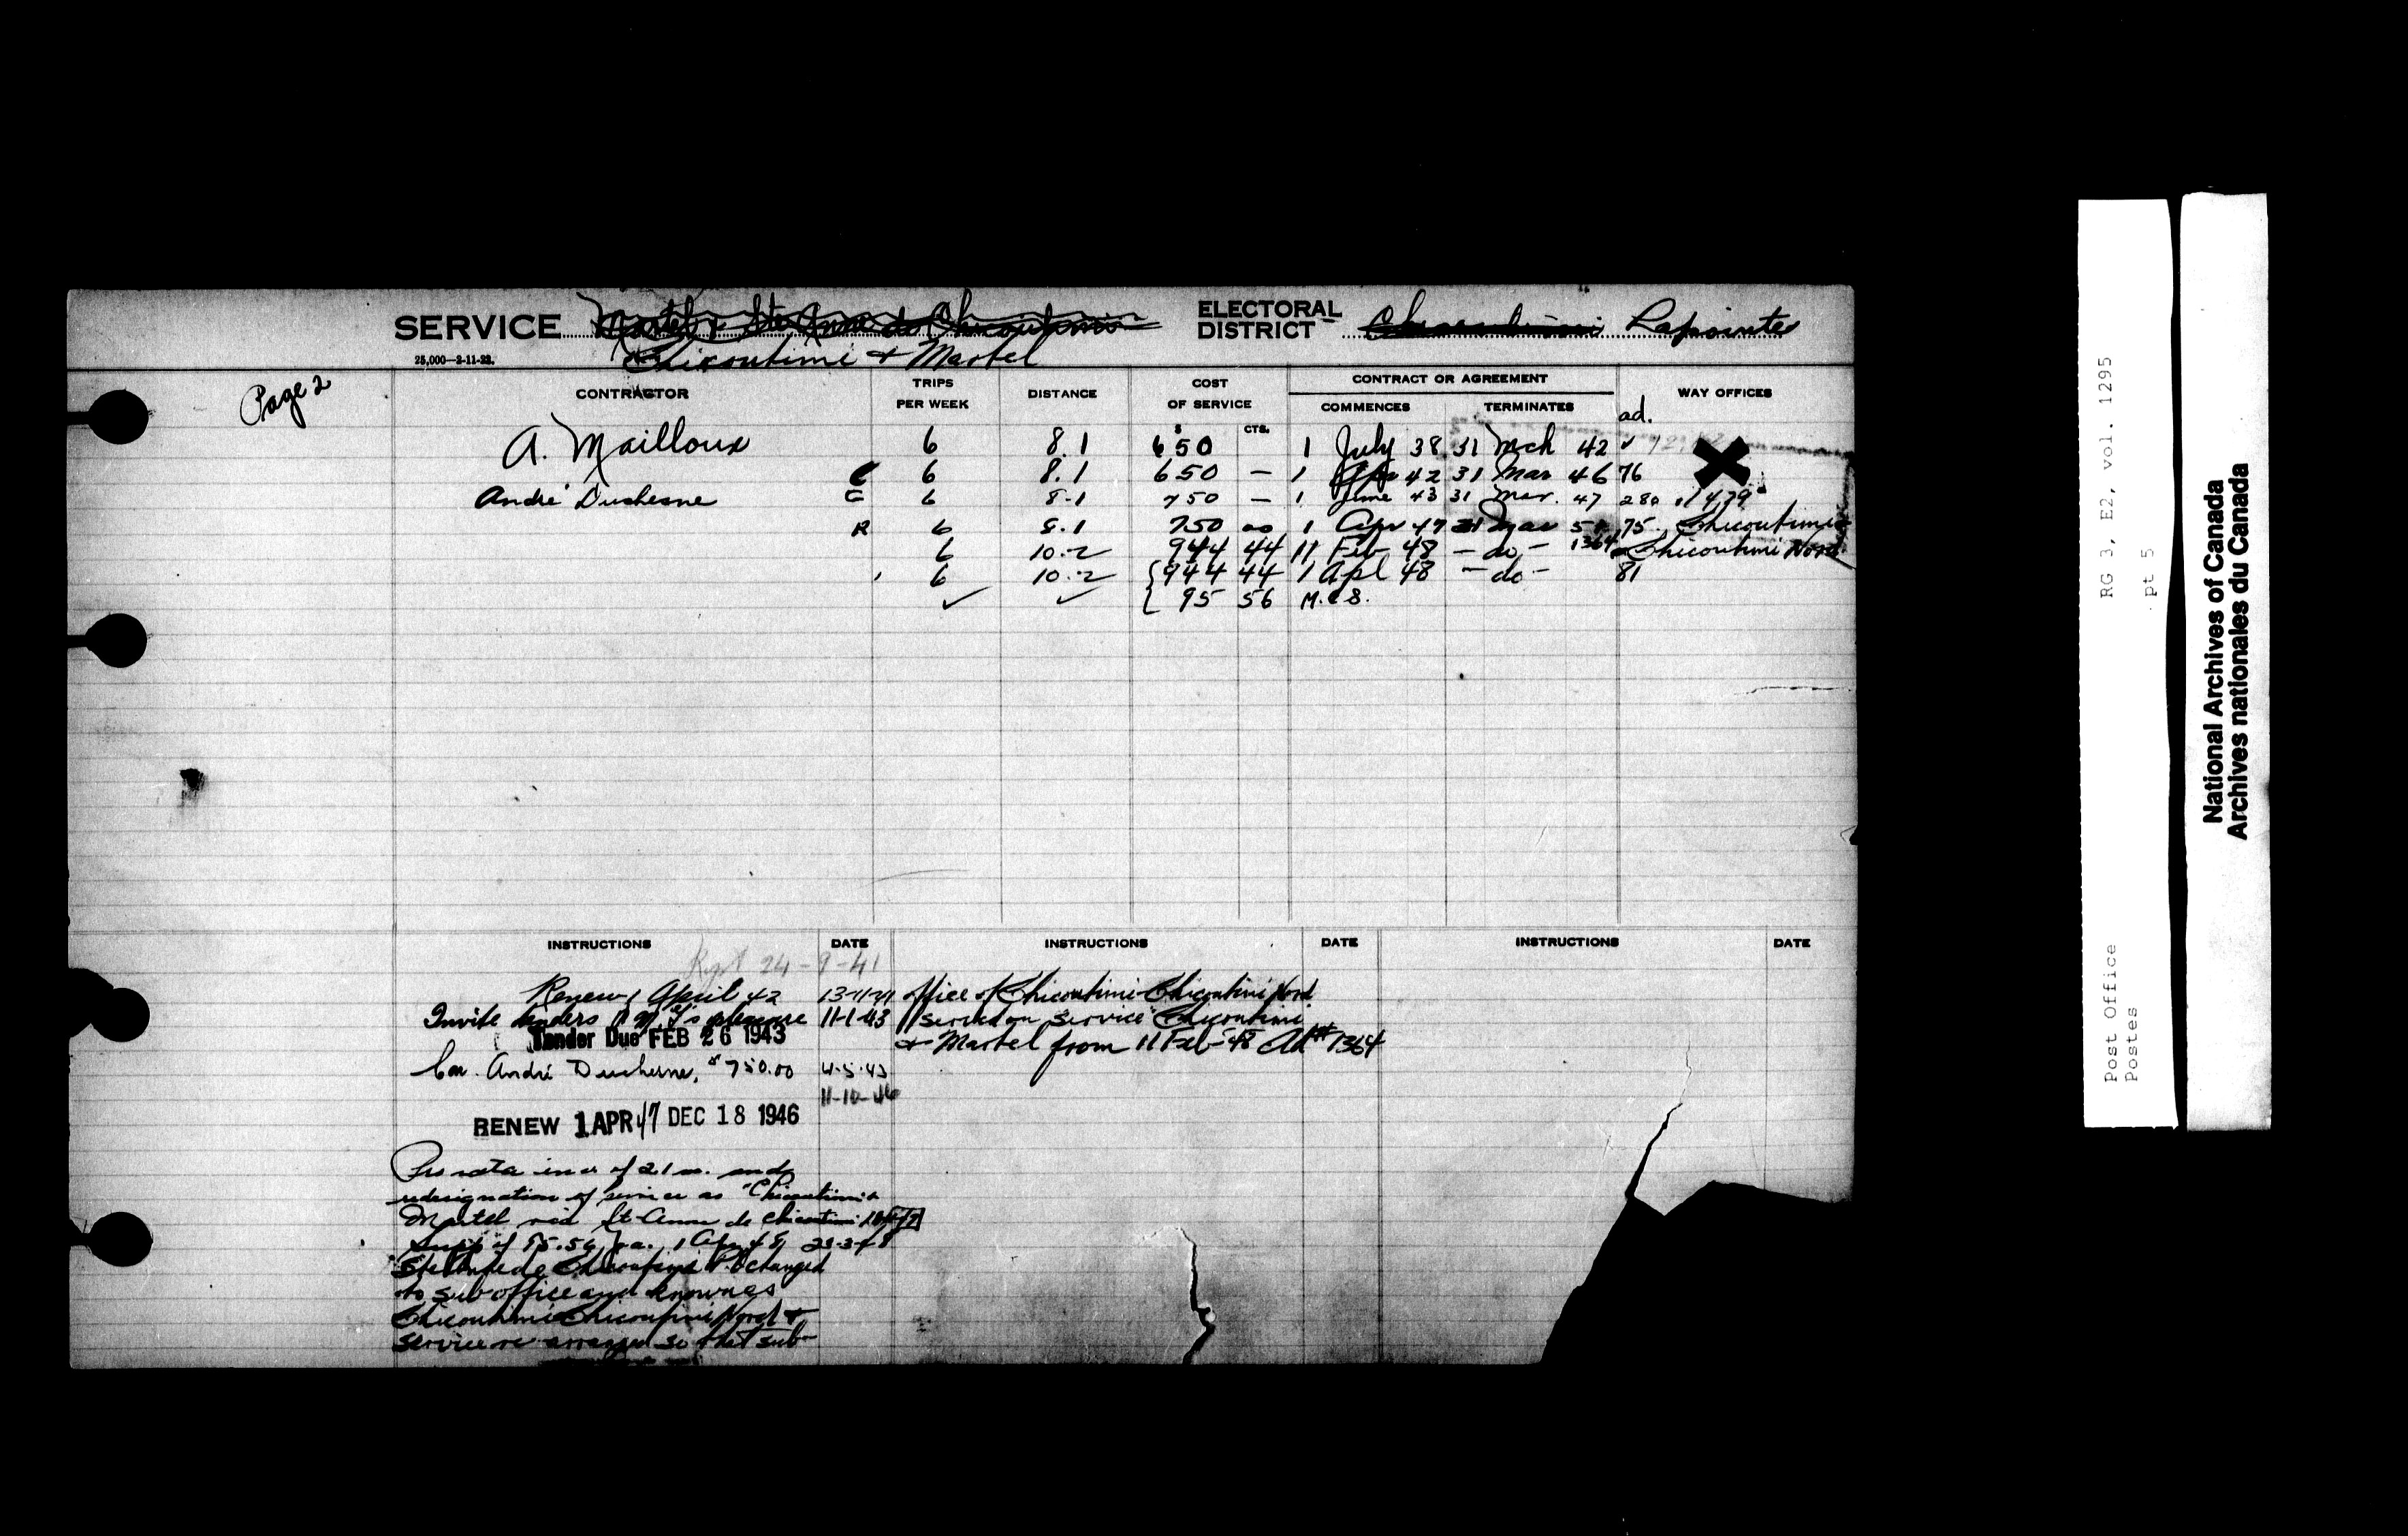 SERVICE Martel & Ste Anne de Chicoutimi ELECTORAL DISTRICT Chicoutimi Lapointe
25,000—2-11-23. Chicoutimi & Martel
Page 2
CONTRACTOR TRIPS PER WEEK DISTANCE COST OF SERVICE CONTRACT OR AGREEMENT WAY OFFICES
COMMENCES TERMINATES ad.
$ CTS.
A. Mailloux 6 8.1 650 1 July 38 31 Mch 42 ✓
C 6 8.1 650 — 1 Apr 42 31 Mar 46 76
André Duchesne C 6 8-1 750 — 1 June 43 31 Mar. 47 280 1479
R 6 8.1 750 00 1 Apr 47 31 Mar 51 75 Chicoutimi
6 10.2 944 44 11 Feb 48 - do - 1364 Chicoutimi Nord
6 10.2 {944 44 1 Apl 48 - do - 81
✓ ✓ { 95 56 M.C.S.
INSTRUCTIONS DATE INSTRUCTIONS DATE INSTRUCTIONS DATE
Rept 24-9-41
Renew 1 April 42 13-11-41
Invite tenders P.M.G's pleasure 11-1-43
Tender Due FEB 26 1943
Con. André Duchesne, $750.00 4-5-43
11-10-46
RENEW 1 APR 47 DEC 18 1946
Pro rata incr of 2.1 m. and
redesignation of service as "Chicoutimi &
Martel via St-Anne de Chicoutimi
of 95.56 p.a. 1 Apr 48 23-3-48
Ste Anne de Chicoutimi P.O changed
to sub office and known as
Chicoutimi-Chicoutimi Nord &
service re arranged so that sub-
office of Chicoutimi-Chicoutimi Nord
served on service Chicoutimi
& Martel from 11 Feb-48 Ad# 1364
RG 3, E2, vol. 1295
pt 5
Post Office
Postes
National Archives of Canada
Archives nationales du Canada